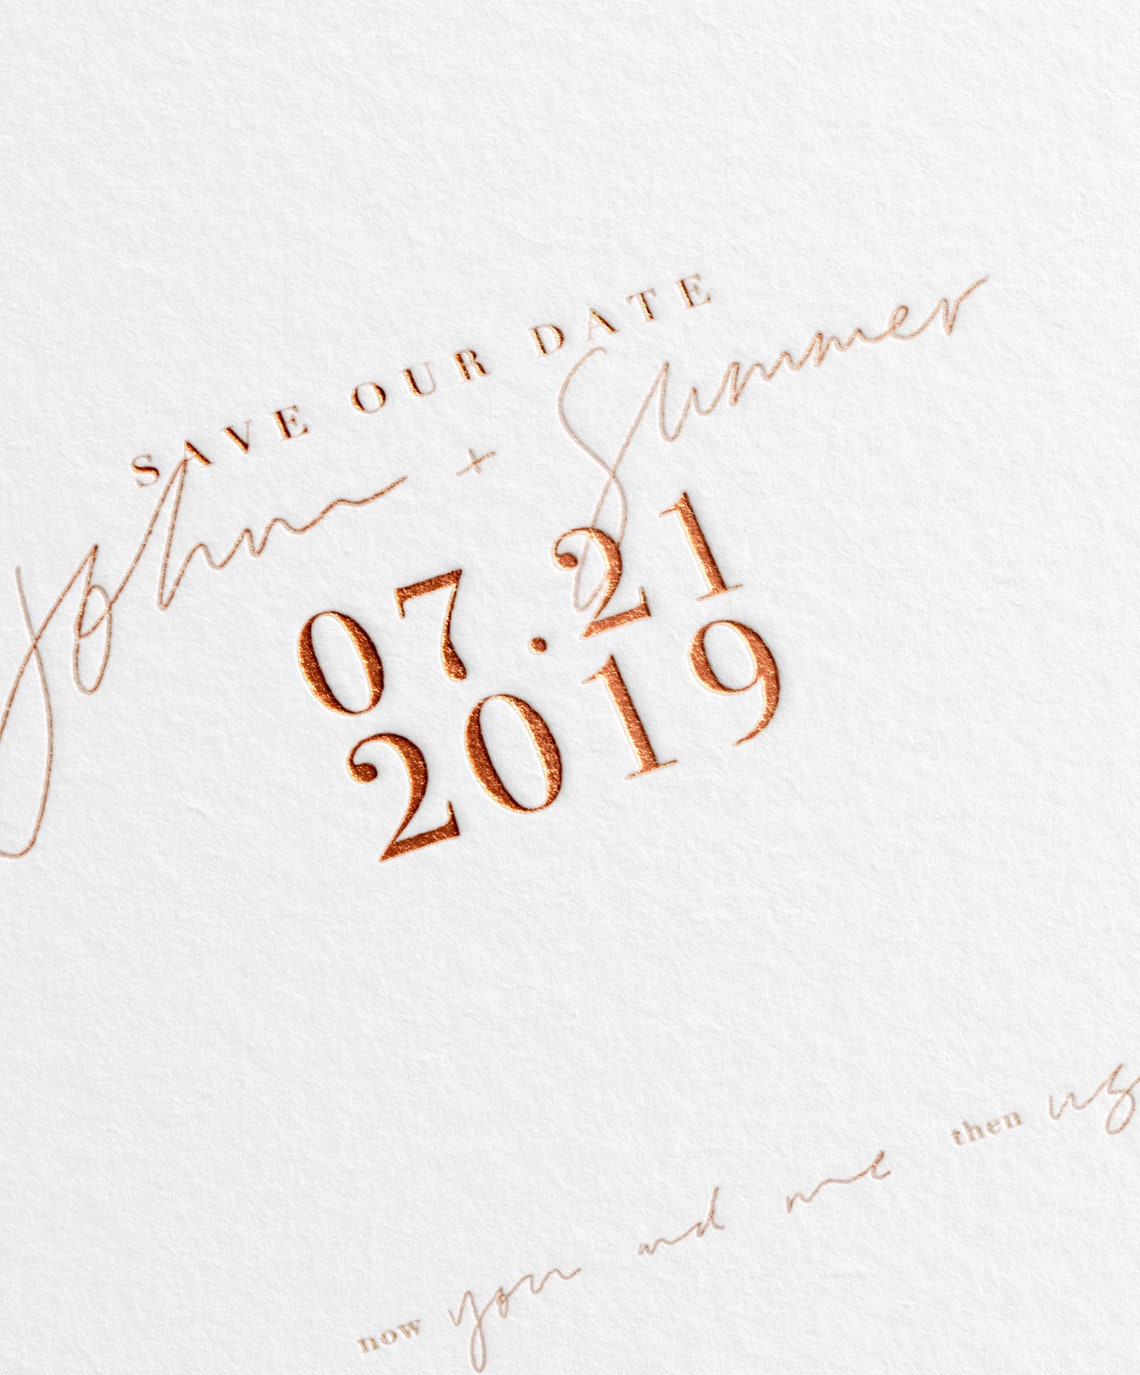 SAVE OUR DATE
John + Summer
07.21
2019
now you and me then us